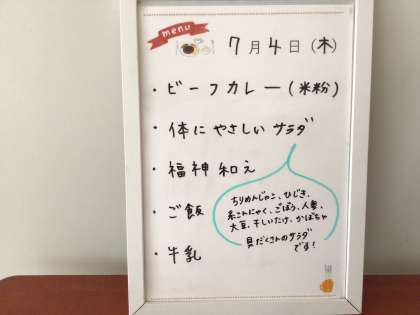 menu
7月4日(木)
・ビーフカレー(米粉)
・体にやさしいサラダ
・福神和え
・ご飯
・牛乳
ちりめんじゃこ、ひじき、
糸こんにゃく、ごぼう、人参、
大豆、干しいたけ、かぼちゃ
具だくさんのサラダ
です!